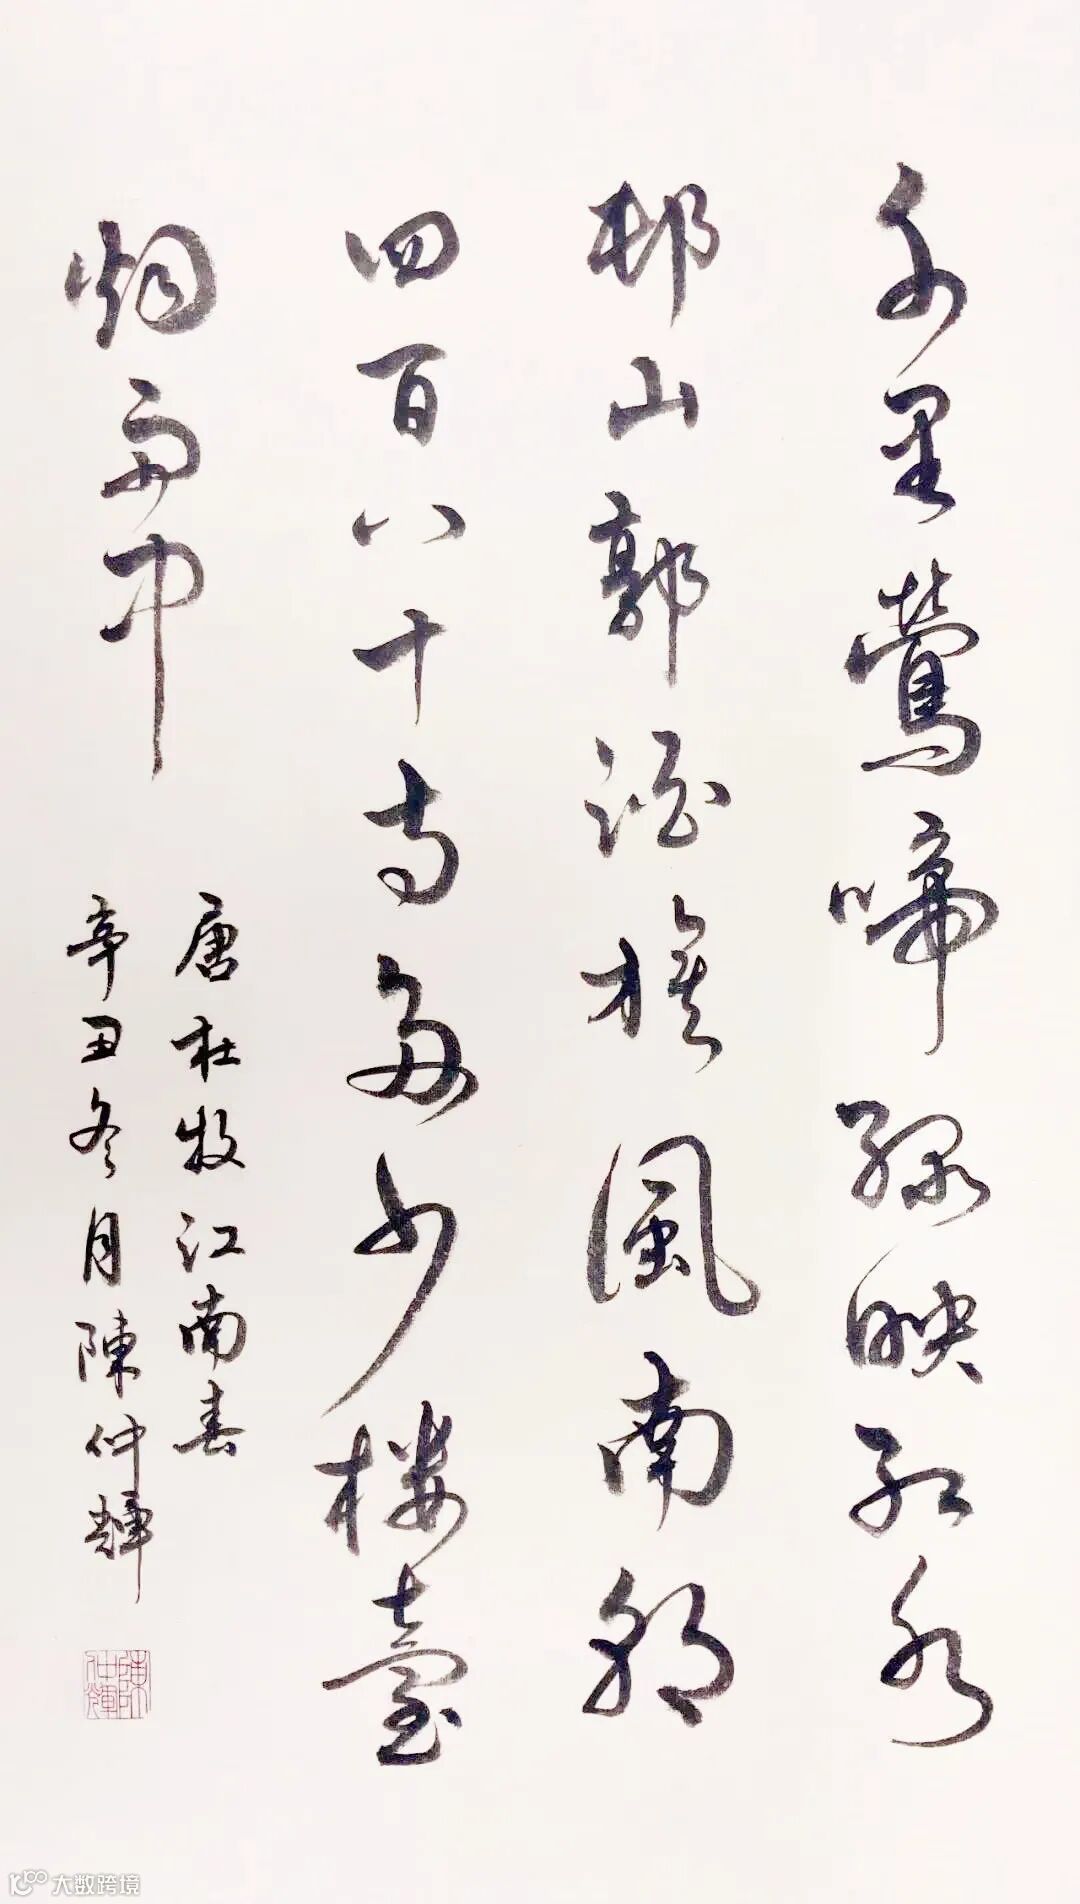 千里鶯啼綠映紅水
邨山郭酒旗風南朝
四百八十寺多少樓臺
烟雨中
唐杜牧江南春
辛丑冬月陳仲輝
陳仲輝
大数跨境